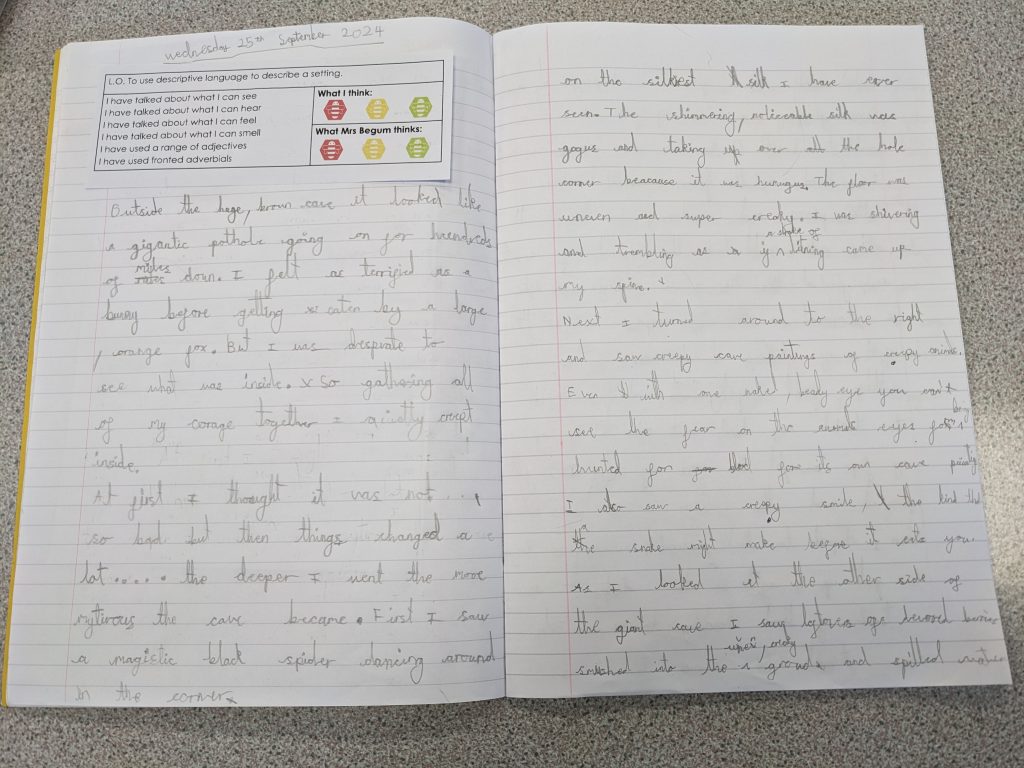 wednesday 25th September 2024
L.O. To use descriptive language to describe a setting.
I have talked about what I can see
I have talked about what I can hear
I have talked about what I can feel
I have talked about what I can smell
I have used a range of adjectives
I have used fronted adverbials
What I think:
What Mrs Begum thinks:
Outside the huge, brown cave it looked like
a gigantic pothole going on for hundreds
of miles down. I felt as terrified as a
bunny before getting eaten by a large
, orange fox. But I was desprate to
see what was inside. So gathering all
of my corage together I quietly crept
inside.
At first I thought it was not ...
so bad but then things changed a
lot..... the deeper I went the more
mytirous the cave became. First I saw
a magistic black spider dancing around
in the corner
on the silkiest silk I have ever
seen. The shimmering, noticeable silk was
gogus and taking over the hole
corner beacause it was The floor was
uneven and super creaky. I was shivering
and trembling as a stroke of litning came up
my spine.
Next I turned around to the right
and saw creepy cave paintings of creepy
Even with one naked, beady eye you can't
see the fear on the animals eyes being
hunted for food for its own cave painting
I also saw a creepy smile, the kind that
a snake might make before it eats you.
As I looked at the other side of
the giant cave I saw
smushed into the uneven, creaky ground and spilled